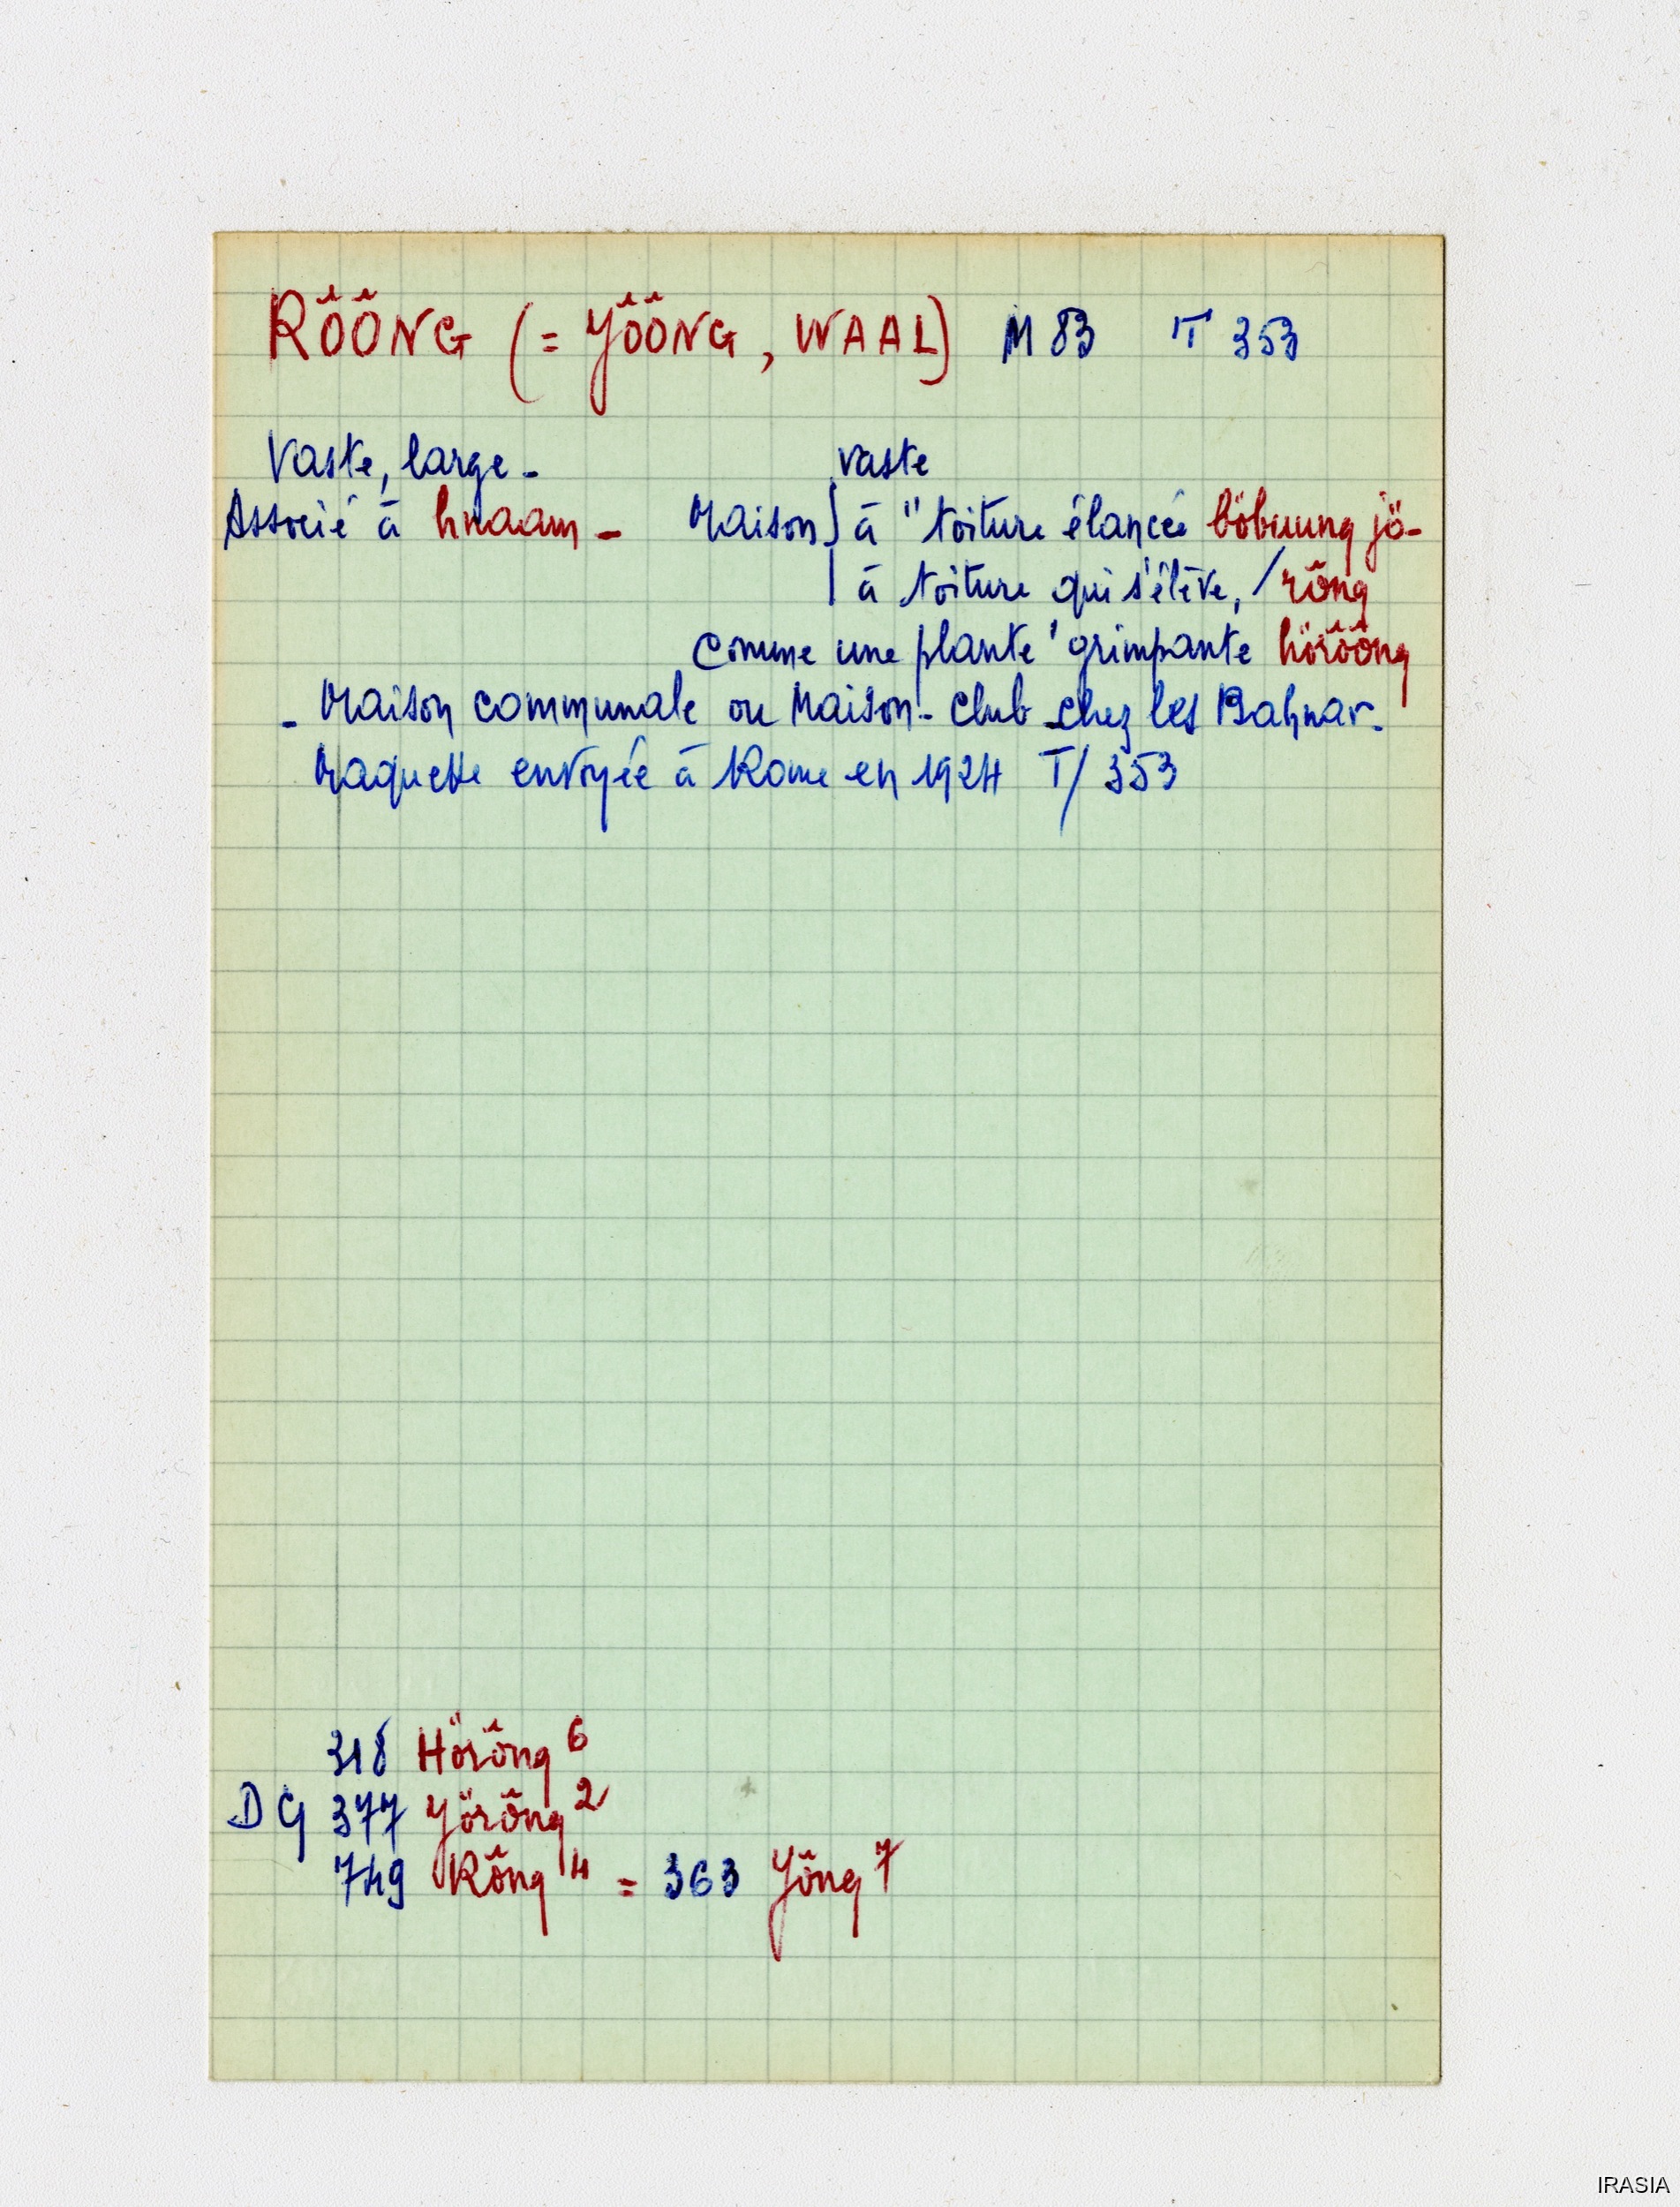 RÔ̆Ô̆NG (= YÔ̆Ô̆NG, WAAL) M 83 T 353
Vaste, large -
vaste
Associé à hnaam - Maison à "toiture élancée böbuung jö-
à toiture qui s'élève, / rông
comme une plante grimpante hörôông
- Maison communale ou Maison-club chez les Bahnar.
Maquette envoyée à Rome en 1924 T/353
318 Hörông 6
DG 377 Yörông 2
749 Rông 4 = 363 Yông 7
IRASIA